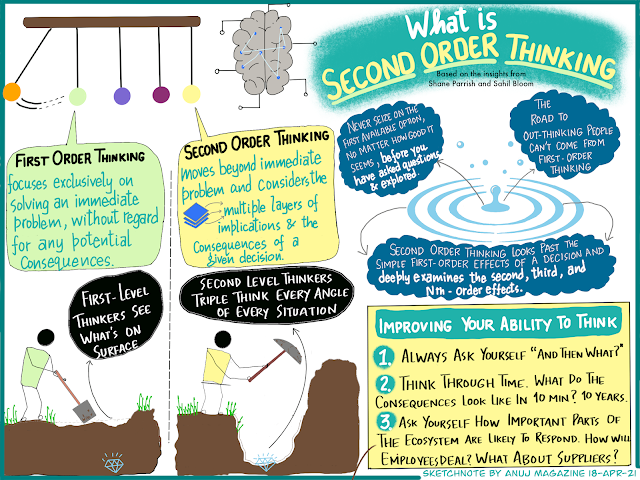 What is
SECOND ORDER THINKING
Based on the insights from
Shane Parrish and Sahil Bloom
FIRST ORDER THINKING
focuses exclusively on
solving an immediate
problem, without regard
for any potential
Consequences.
SECOND ORDER THINKING
moves beyond immediate
problem and considers the
multiple layers of
implications & the
Consequences of a
given decision.
NEVER SEIZE ON THE
FIRST AVAILABLE OPTION,
NO MATTER HOW GOOD IT
SEEMS, before you
have asked questions
& explored.
THE
ROAD TO
OUT-THINKING PEOPLE
CAN'T COME FROM
FIRST-ORDER
THINKING
SECOND ORDER THINKING LOOKS PAST THE
SIMPLE FIRST-ORDER EFFECTS OF A DECISION AND
deeply examines the second, third, and
Nth-order effects.
FIRST-LEVEL
THINKERS SEE
WHAT'S ON
SURFACE
SECOND LEVEL THINKERS
TRIPLE THINK EVERY ANGLE
OF EVERY SITUATION
IMPROVING YOUR ABILITY TO THINK
1. ALWAYS ASK YOURSELF "AND THEN WHAT?"
2. THINK THROUGH TIME. WHAT DO THE
CONSEQUENCES LOOK LIKE IN 10 MIN? 10 YEARS.
3 ASK YOURSELF HOW IMPORTANT PARTS OF
THE ECOSYSTEM ARE LIKELY TO RESPOND. HOW WILL
EMPLOYEES DEAL? WHAT ABOUT SUPPLIERS?
SKETCHNOTE BY ANUJ MAGAZINE 18-APR-21